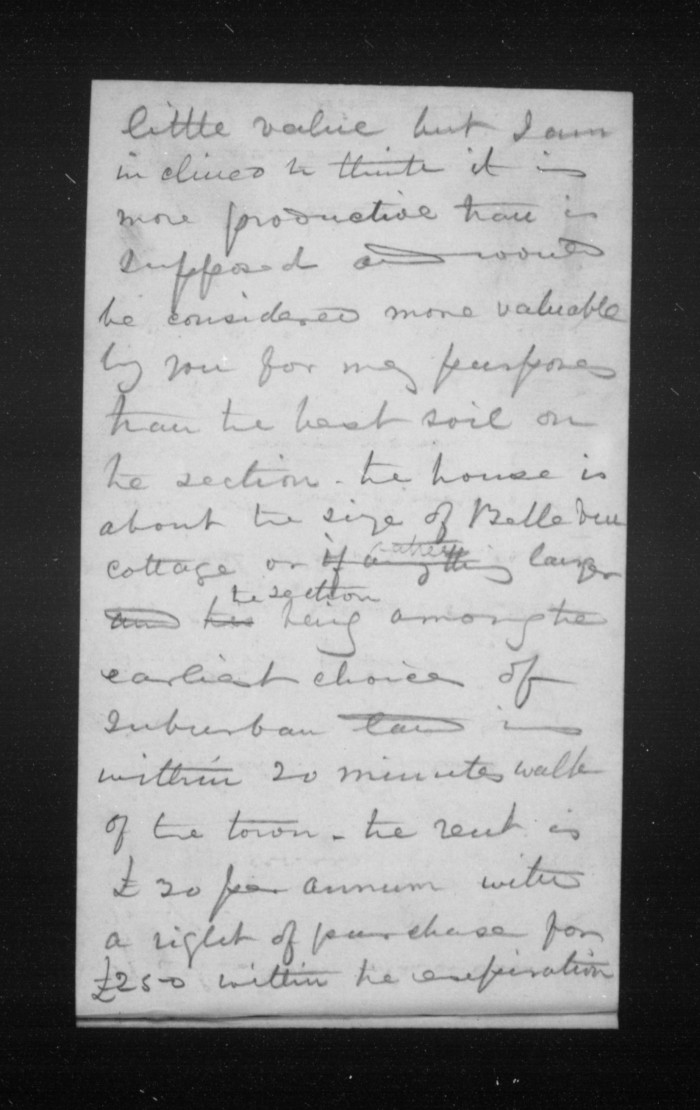 little value but I am
inclined to think it is
more productive than is
supposed and would
be considered more valuable
by you for my purposes
than the best soil on
the section - the house is
about the size of Belle Vue
rather
cottage or if anything larger
the section
and the being among the
earliest choices of
suburban land is
within 20 minutes walk
of the town - the rent is
£20 per annum with
a right of purchase for
£250 within the expiration